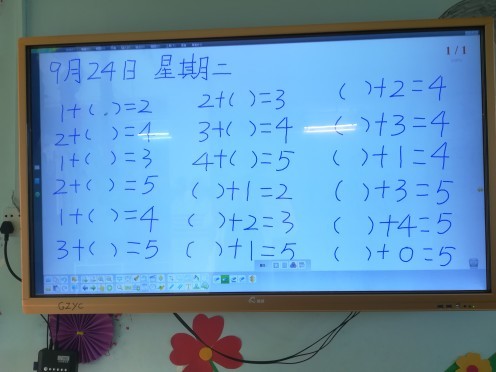 1/1
9月24日 星期二
1+( )=2 2+( )=3 ( )+2=4
2+( )=4 3+( )=4 ( )+3=4
1+( )=3 4+( )=5 ( )+1=4
2+( )=5 ( )+1=2 ( )+3=5
1+( )=4 ( )+2=3 ( )+4=5
3+( )=5 ( )+1=5 ( )+0=5
GZYC